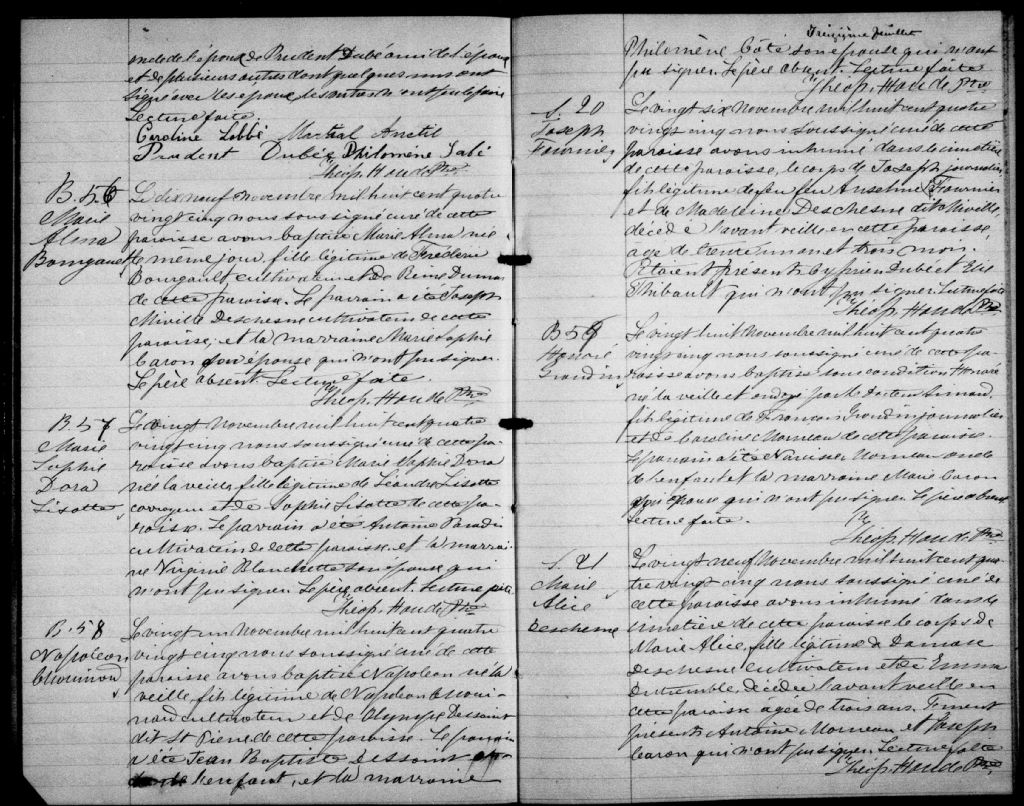 oncle de l'épouse, de Prudent Dubé ami de l'époux
et de plusieurs autres dont quelques uns ont
signé avec les époux, les autres n'ont pu le faire
Lecture faite
Caroline Labbé Martial Anctil
Prudent Dubé Philomène Labé
Théop. Houde Ptre
B. 56
Marie
Alma
Bourgault
Le dix neuf novembre mil huit cent quatre
vingt cinq nous soussigné curé de cette
paroisse avons baptisé Marie Alma née
le même jour, fille légitime de Fréderic
Bourgault cultivateur et de Reine Dumas
de cette paroisse. Le parrain a été Joseph
Miville Deschesne cultivateur de cette
paroisse, et la marraine Marie Sophie
Caron son épouse qui n'ont pu signer.
Le père absent. Lecture faite.
Théop. Houde Ptre
B. 57
Marie
Sophie
Dora
Lisotte
Le vingt Novembre mil huit cent quatre
vingt cinq nous soussigné curé de cette pa-
roisse avons baptisé Marie Sophie Dora
née la veille, fille légitime de Léandre Lisotte
corroyeur et de Sophie Lisotte de cette pa-
roisse. Le parrain a été Antoine Paradis
cultivateur de cette paroisse et la marrai-
ne Virginie Blanchette son épouse qui
n'ont pu signer. Le père absent. Lecture faite.
Théop. Houde Ptre
B. 58
Napoléon
Chouinard
Le vingt un Novembre mil huit cent quatre
vingt cinq nous soussigné curé de cette
paroisse avons baptisé Napoléon né la
veille, fils légitime de Napoléon Choui-
nard cultivateur et de Olympe Dessaint
dit St Pierre de cette paroisse. Le parrain
a été Jean Baptiste Dessaint
de l'enfant, et la marraine
Treizième feuillet
Philomène Côté son épouse qui n'ont
pu signer. Le père absent. Lecture faite
Théop. Houde Ptre
S. 20
Joseph
Fournier
Le vingt six Novembre mil huit cent quatre
vingt cinq nous soussigné curé de cette
paroisse avons inhumé dans le cimetière
de cette paroisse, le corps de Joseph journalier,
fils légitime de feu Anselme Fournier
et de Madeleine Deschesne dit Miville,
décédé l'avant veille en cette paroisse,
agé de trente un an et trois mois.
Etaient présents Cyprien Dubé et Elie
Thibault qui n'ont pu signer. Lecture faite
Théop. Houde Ptre
B 59
Honoré
Grondin
Le vingt huit Novembre mil huit cent quatre
vingt cinq nous soussigné curé de cette pa-
roisse avons baptisé sous condition Honoré
né la veille et ondoyé par le Docteur Simard,
fils légitime de François Grondin journalier
et de Caroline Morneau de cette paroisse.
Le parrain a été Narcisse Morneau oncle
de l'enfant et la marraine Marie Caron
son épouse qui n'ont pu signer. Le père absent
Lecture faite.
Théop. Houde Ptre
S. 21
Marie
Alice
Deschesne
Le vingt neuf Novembre mil huit cent qua-
tre vingt cinq nous soussigné curé de
cette paroisse avons inhumé dans le
cimetière de cette paroisse le corps de
Marie Alice, fille légitime de Damase
Deschesne cultivateur et de Emma
Dutremble, décédée l'avant veille en
cette paroisse agée de trois ans. Furent
présents Antoine Morneau et Joseph
Caron qui n'ont pu signer. Lecture faite
Théop. Houde Ptre